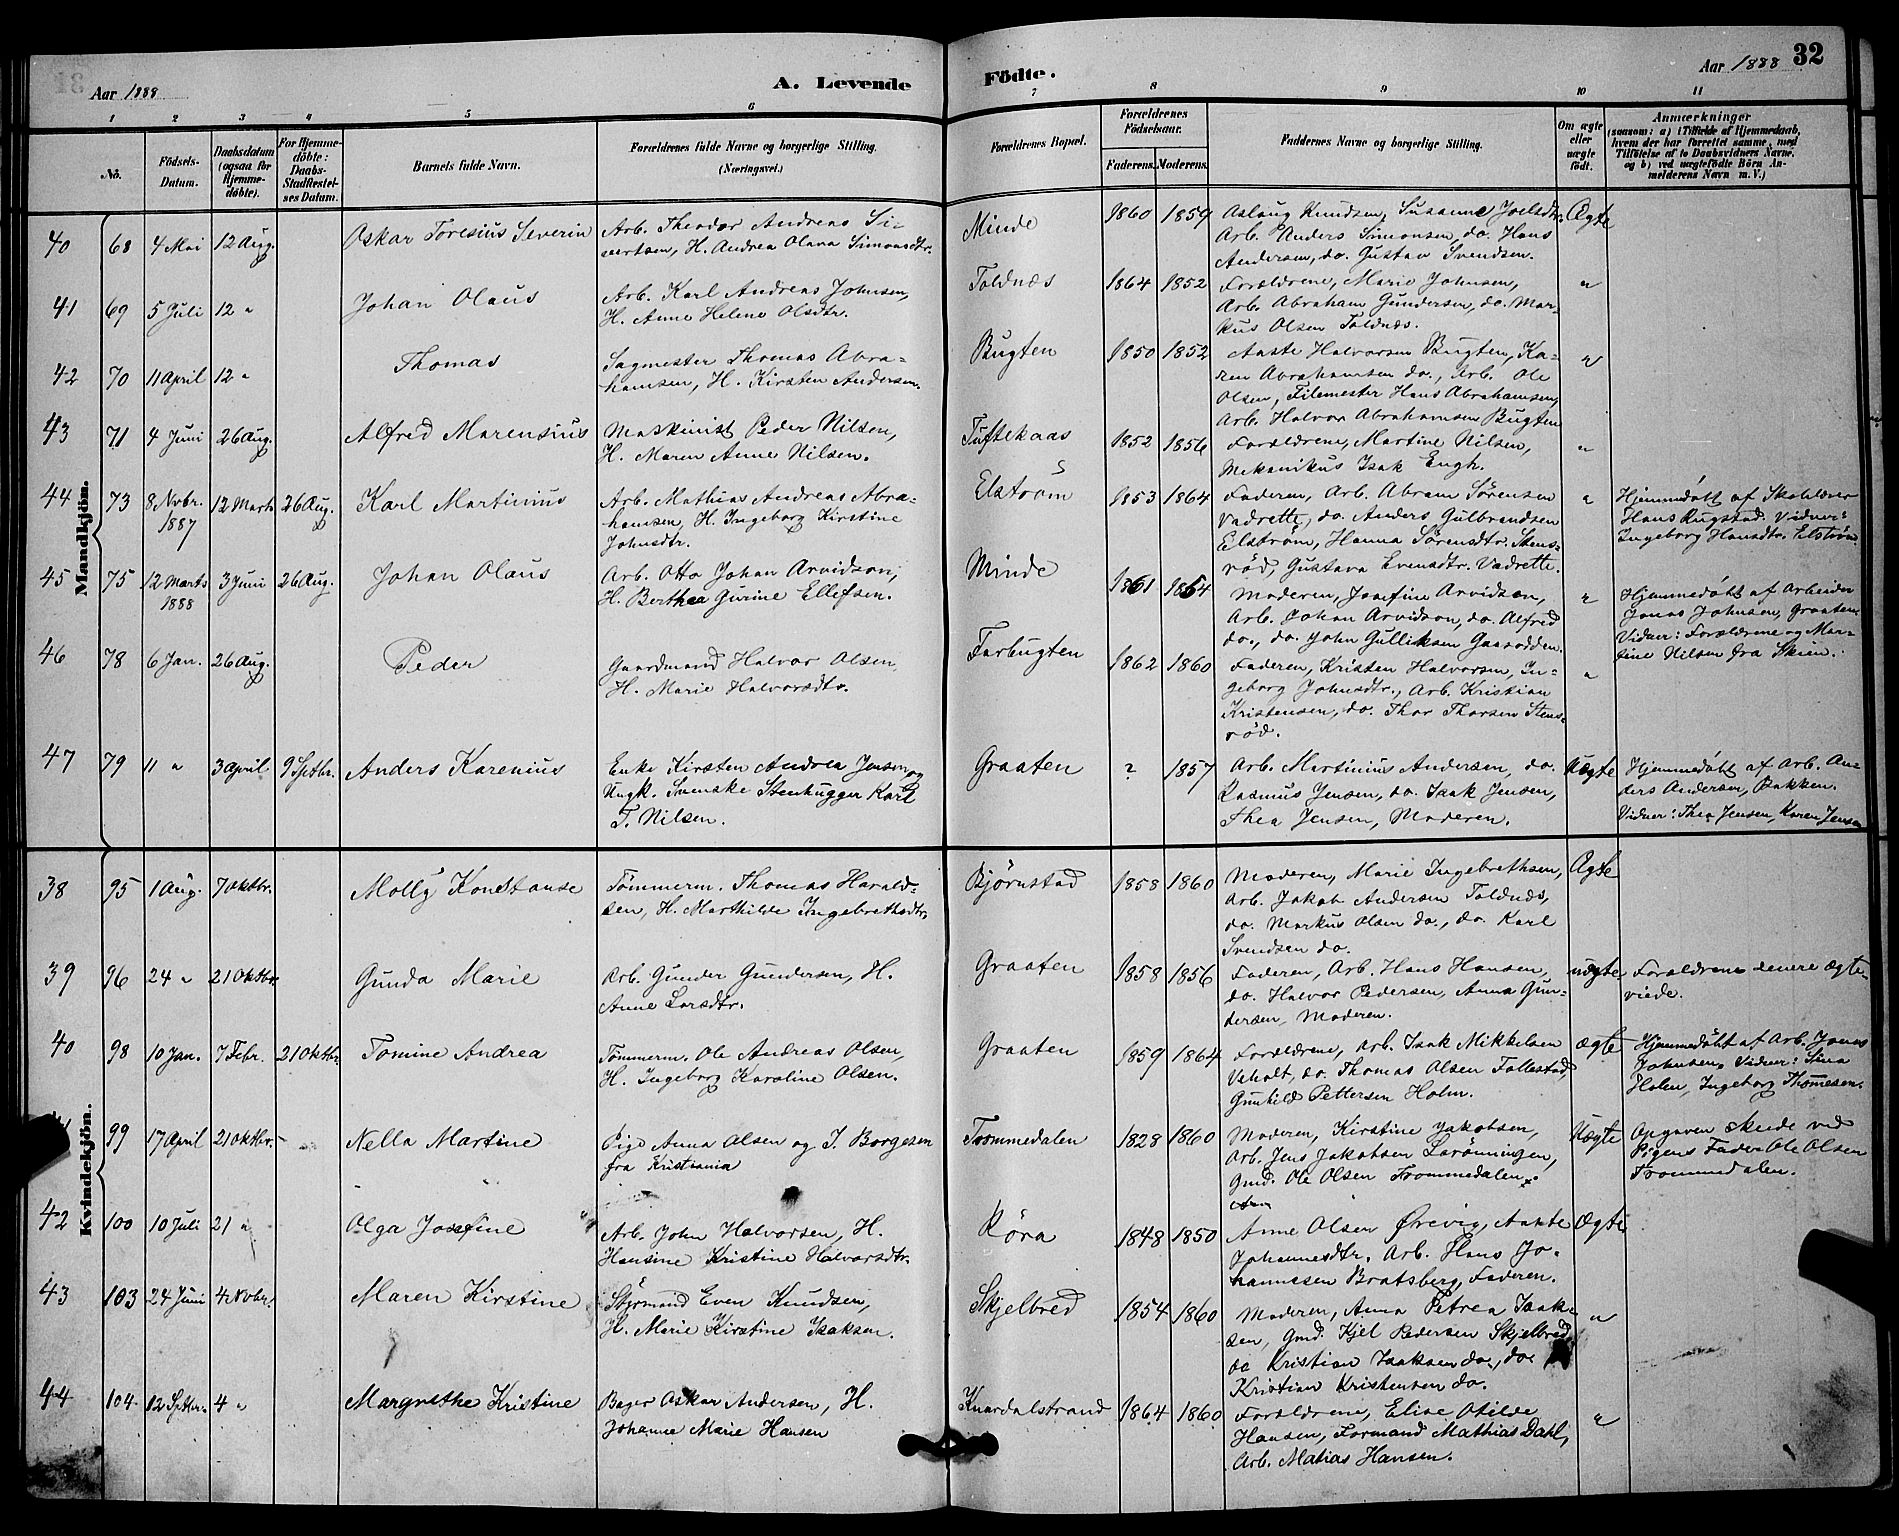 Aar 1888
A. Levende
Fødte.
Aar 1888
32
1 2 3 4 5 6 7 8 9 10 11
No.
Födsels-Datum.
Daabsdatum (ogsaa for Hjemmedöbte).
For Hjemmedöbte: Daabs-Stadfæstelses Datum.
Barnets fulde Navn.
Forældrenes fulde Navne og borgerlige Stilling. (Næringsvei.)
Forældrenes Bopæl.
Forældrenes Födselsaar.
Faderens. Moderens.
Faddernes Navne og borgerlige Stilling.
Om ægte eller uægte født.
Anmærkninger
(saasom: a) i Tilfælde af Hjemmedaab, hvem der har forrettet samme, med Tilföielse af to Daabsvidners Navne, og b) ved uægtefödte Börn Anmelderens Navn m. V.)
Mandkjön.
40 68 4 Mai 12 Aug. Oskar Toresius Severin
Arb. Theodor Andreas Si-
vertsen, H. Andrea Olava Simonsdtr.
Minde 1860 1859
Aslaug Knudsen, Susanne Joelsdtr.
Arb. Anders Simonsen, do. Hans
Andersen, do. Gustav Svendsen.
Ægte
41 69 5 Juli 12 " Johan Olaus
Arb. Karl Andreas Johnsen,
H. Anne Helene Olsdtr.
Toldnæs 1864 1852
Forældrene, Marie Johnsen,
Arb. Abraham Gundersen, do. Mar-
kus Olsen Toldnæs.
"
42 70 11 April 12 " Thomas
Sagmester Thomas Abra-
hamsen, H. Kirsten Andersen.
Bugten 1850 1852
Aaste Halvorsen Bugten, Ka-
ren Abrahamsen do., Arb. Ole
Olsen, Filemester Hans Abrahamsen,
Arb. Halvor Abrahamsen Bugten
"
43 71 4 Juni 26 Aug. Alfred Marensius
Maskinist Peder Nilsen,
H. Maren Anne Nilsen.
Tuftekaas 1852 1856
Forældrene, Martine Nilsen,
Mekanikus Isak Engh.
"
44 73 8 Novbr. 1887 12 Marts 26 Aug. Karl Martinius
Arb. Mathias Andreas Abra-
hamsen, H. Ingeborg Kirstine
Johnsdtr.
Elstrøm 1853 1864
Faderen, Arb. Abram Sørensen
Vadrette, do. Anders Gulbrandsen
Elstrøm, Hanna Sørensdtr. Stens-
rød, Gustava Evensdtr. Vadrette.
"
Hjemmedøbt af Skolelærer
Hans Rugstad. Vidner:
Ingeborg Hansdtr. Elstrøm
45 75 12 Marts 1888 3 Juni 26 Aug. Johan Olaus
Arb. Otto Johan Arvidson,
H. Berthea Gurine Ellefsen.
Minde 1861 1864
Moderen, Josefine Arvidson,
Arb. Johan Arvidson, do. Alfred
do., do. John Gulliksen Gaasodden.
"
Hjemmedøbt af Arbeider
Jonas Johnsen, Graaten
Vidner: Forældrene og Mar-
tine Nilsen fra Skien.
46 78 6 Jan. 26 Aug. Peder
Gaardmand Halvor Olsen,
H. Marie Halvorsdtr.
Farbugten 1862 1860
Faderen, Kristen Halvorsen, In-
geborg Johnsdtr., Arb. Kristian
Kristensen, do. Thor Thorsen Stens-
rød.
"
47 79 11 " 3 April 9 Septbr. Anders Karenius
Enke Kirsten Andrea Jensen og
Ungk. Svenske Stenhugger Karl
T. Nilsen.
Graaten ? 1857
Arb. Martinius Andersen, do.
Rasmus Jensen, do. Isak Jensen,
Thea Jensen, Moderen.
Uægte
Hjemmedøbt af Arb. An-
ders Andersen, Bakken.
Vidner: Thea Jensen, Karen Jensen
Kvindekjön.
38 95 1 Aug. 7 Oktbr. Molly Konstanse
Tømmerm. Thomas Harald-
sen, H. Marthilde Ingebrethsdtr.
Bjørnstad 1858 1860
Moderen, Marie Ingebrethsen,
Arb. Jakob Andersen Toldnæs,
do. Markus Olsen do., do. Karl
Svendsen do.
Ægte
39 96 24 " 21 Oktbr. Gunda Marie
Arb. Gunder Gundersen, H.
Anne Larsdtr.
Graaten 1858 1856
Faderen, Arb. Hans Hansen,
do. Halvor Pedersen, Anna Gun-
dersen, Moderen.
uægte
Forældrene senere ægte-
viede.
40 98 10 Jan. 7 Febr. 21 Oktbr. Tomine Andrea
Tømmerm. Ole Andreas Olsen,
H. Ingeborg Karoline Olsen.
Graaten 1859 1864
Forældrene, Arb. Isak Mikkelsen
Veholt, do. Thomas Olsen Follestad,
Gunhild Pettersen Holm.
ægte
Hjemmedøbt af Arb. Jonas
Johnsen, Vidner: Sina
Holen, Ingeborg Thomesen.
99 17 April 21 Oktbr. Nella Martine
Pige Anna Olsen og J. Borgesen
fra Kristiania
Trommedalen 1828 1860
Moderen, Kirstine Jakobsen,
Arb. Jens Jakobsen Lørønningen,
Gmd. Ole Olsen Trommedalen.
Uægte
Opgaven skede ved
Pigens Fader Ole Olsen
Trommedalen.
42 100 10 Juli 21 " Olga Josefine
Arb. John Halvorsen, H.
Hansine Kristine Halvorsdtr.
Røra 1848 1850
Anne Olsen Ørevig, Aaste
Johannesdtr. Arb. Hans Jo-
hannesen Bratsberg, Faderen.
Ægte
43 103 24 Juni 4 Novbr. Maren Kirstine
Styrmand Even Knudsen,
H. Marie Kirstine Isaksen.
Skjelbred 1854 1860
Moderen, Anna Petrea Isak-
sen, Gmd. Kjel Pedersen Skjelbred,
do Kristian Isaksen do., do
Kristian Kristensen do.
"
44 104 12 Septbr. 4 " Margrethe Kristine
Bager Oskar Andersen, H.
Johanne Marie Hansen
Knardalstrand 1864 1860
Forældrene, Elise Otilde
Hansen, Formand Mathias Dahl,
Arb. Matias Hansen.
"